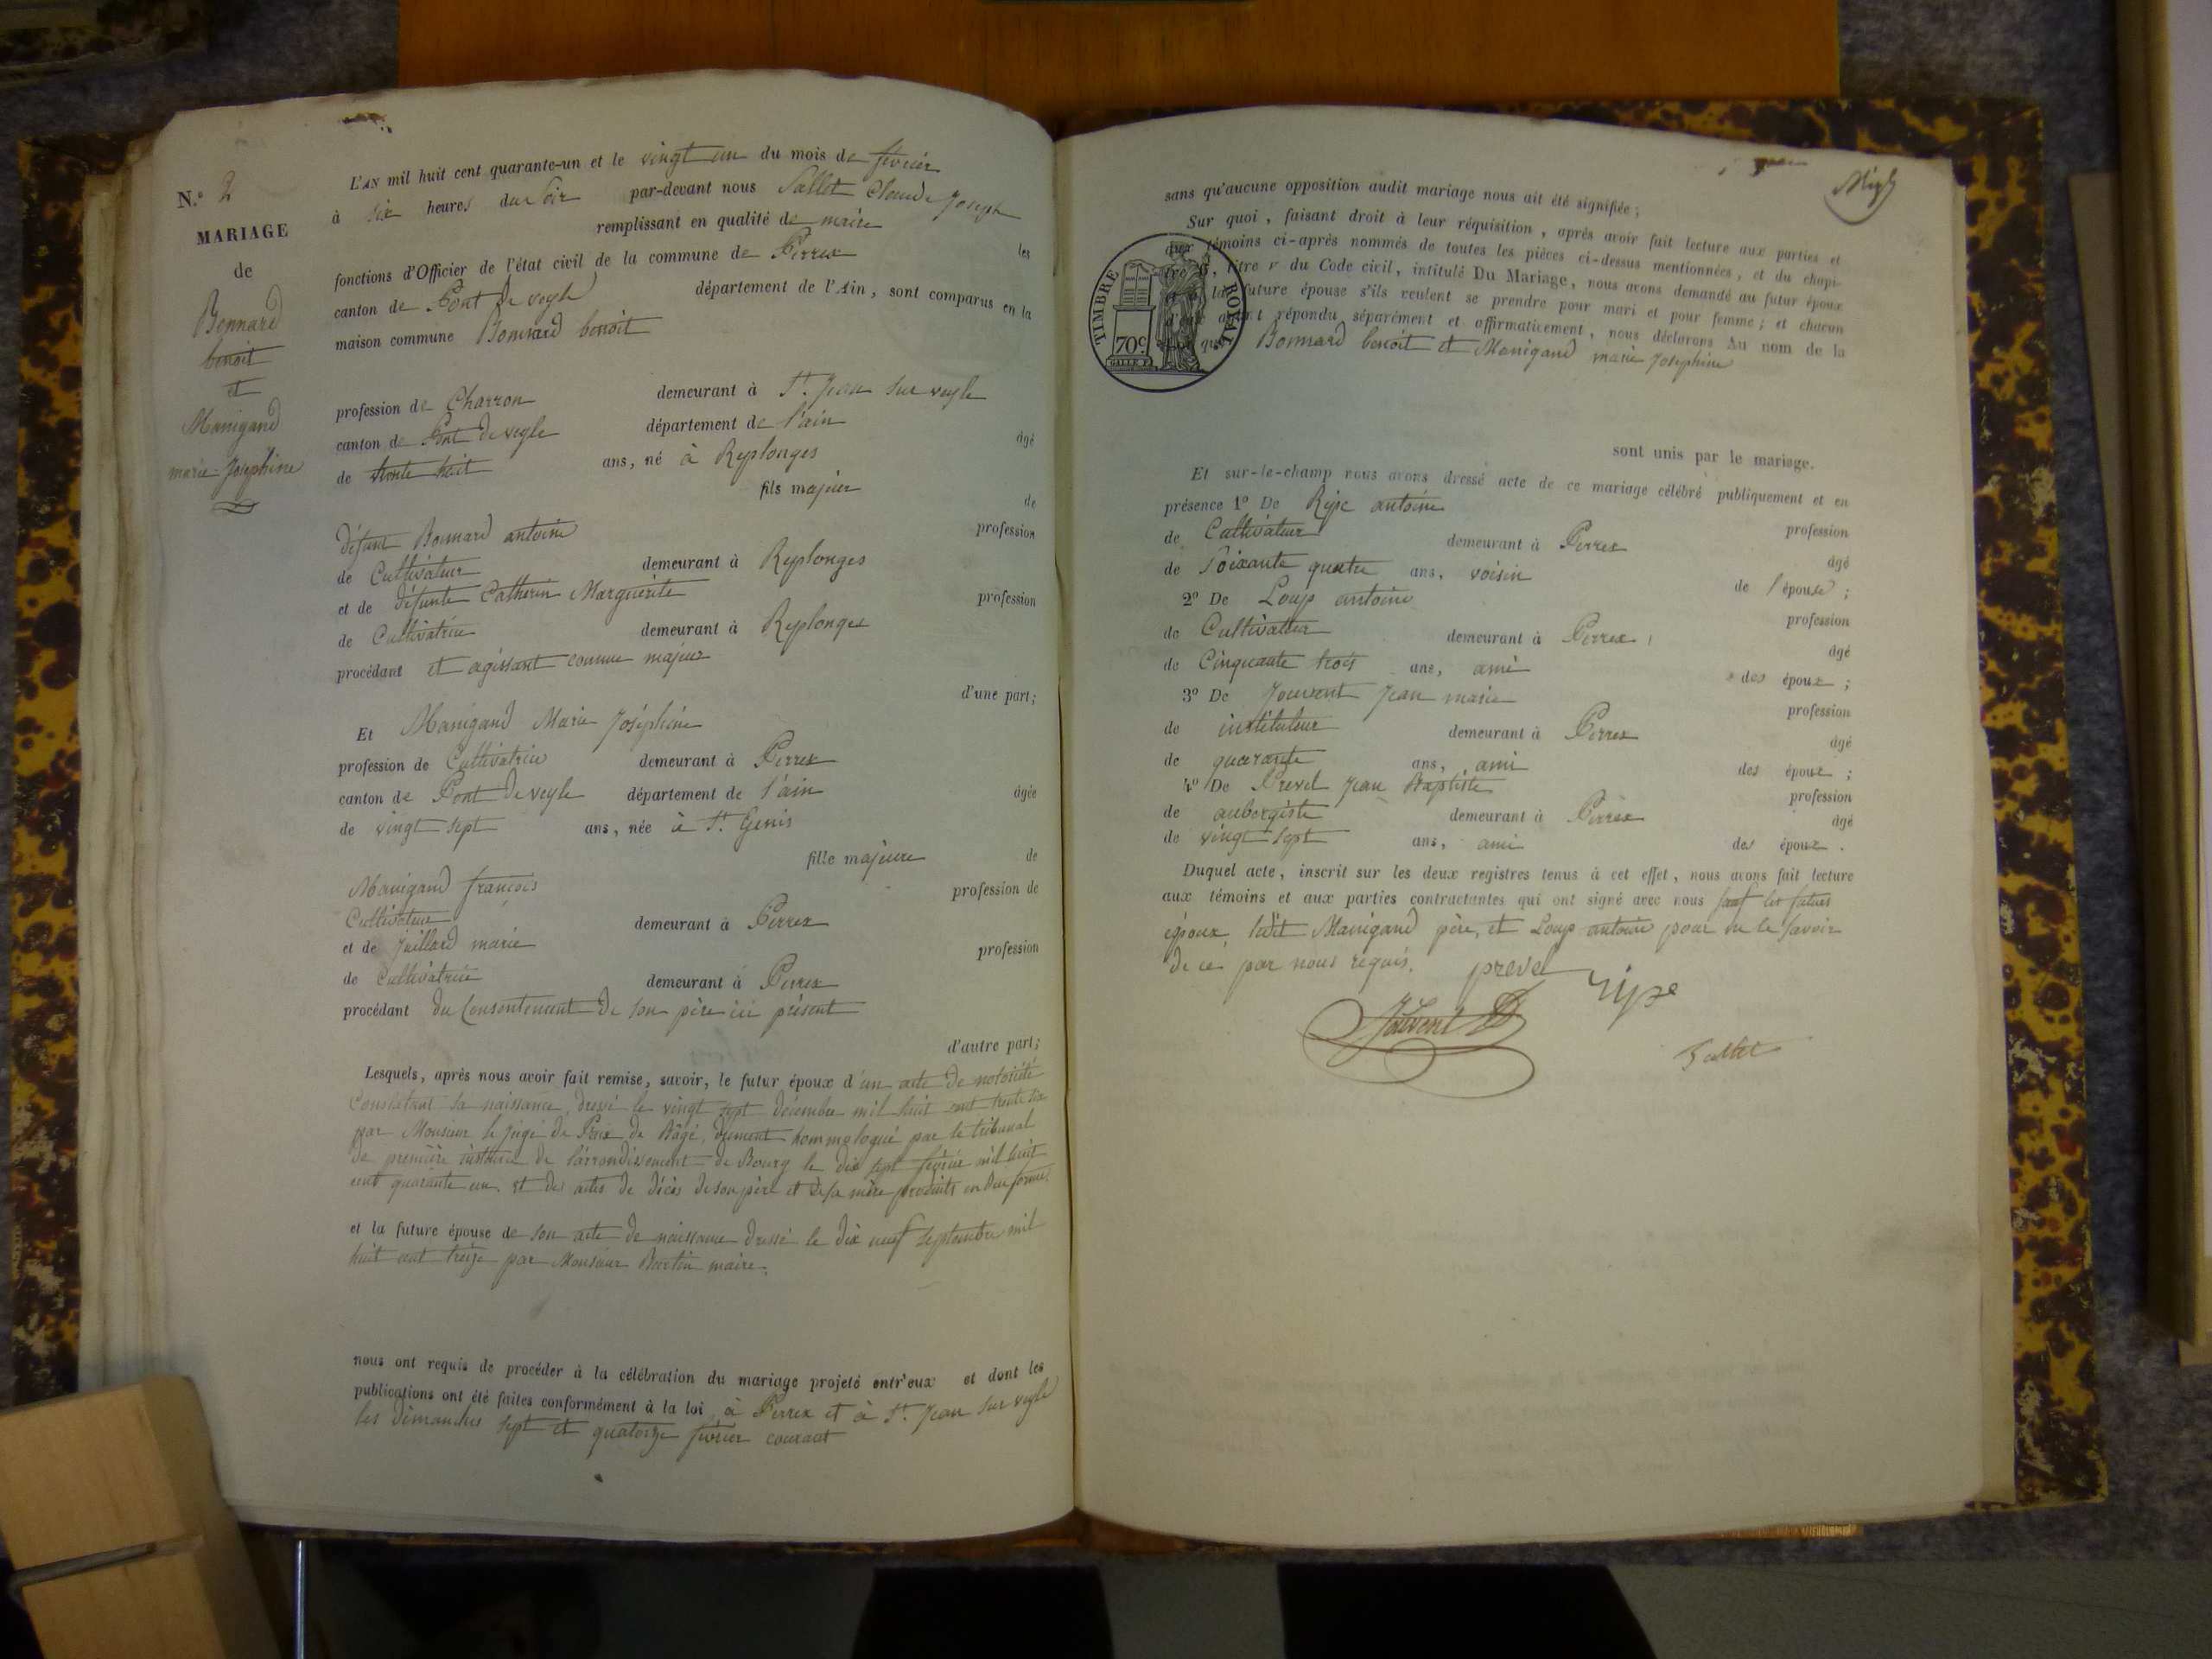 N.º 2
MARIAGE
de
Bonnard
benoit
et
Manigand
marie-Josephine
L'AN mil huit cent quarante-un et le vingt un du mois de fevrier
à six heures du soir par-devant nous Sallet Claude Joseph
remplissant en qualité de maire les
fonctions d'Officier de l'état civil de la commune de Perrex
canton de Pont de veyle département de l'Ain, sont comparus en la
maison commune Bonnard benoit
profession de Charron demeurant à St. Jean sur veyle
canton de Pont de veyle département de l'ain
de trente huit ans, né à Replonges âgé
fils majeur de
défunt Bonnard antoine profession
de Cultivateur demeurant à Replonges
et de défunte Catherin Marguerite profession
de Cultivatrice demeurant à Replonges
procédant et agissant comme majeur
d'une part;
Et Manigand Marie Joséphine
profession de Cultivatrice demeurant à Perrex
canton de Pont de veyle département de l'ain âgée
de vingt sept ans, née à St. Genis
fille majeure de
Manigand françois profession de
Cultivateur demeurant à Perrex
et de Juillard marie profession
de Cultivatrice demeurant à Perrex
procédant du Consentement de son père ici présent
d'autre part;
Lesquels, après nous avoir fait remise, savoir, le futur époux d'un acte de notoriété
Constatant sa naissance, dressé le vingt sept décembre mil huit cent trente six
par Monsieur le Juge de Paix de Bâgé, dument hommologué par le tribunal
de première instance de l'arrondissement de Bourg le dix sept fevrier mil huit
cent quarante un. et des actes de décès de son père et de sa mère produits en due forme.
et la future épouse de son acte de naissance dressé le dix neuf septembre mil
huit cent treize par Monsieur maire.
nous ont requis de procéder à la célébration du mariage projeté entr'eux et dont les
publications ont été faites conformément à la loi à Perrex et à St. Jean sur veyle
les dimanches sept et quatorze fevrier courant
sans qu'aucune opposition audit mariage nous ait été signifiée;
Sur quoi, faisant droit à leur réquisition, après avoir fait lecture aux parties et
aux témoins ci-après nommés de toutes les pièces ci-dessus mentionnées, et du chapi-
tre 6, titre v du Code civil, intitulé Du Mariage, nous avons demandé au futur époux
et à la future épouse s'ils veulent se prendre pour mari et pour femme; et chacun
d'eux ayant répondu séparément et affirmativement, nous déclarons Au nom de la
que Bonnard benoit et Manigand marie Josephine
TIMBRE ROYAL
70c
sont unis par le mariage.
Et sur-le-champ nous avons dressé acte de ce mariage célébré publiquement et en
présence 1º De Ripe antoine profession
de Cultivateur demeurant à Perrex âgé
de Soixante quatre ans, voisin de l'épouse;
2º De Loup antoine profession
de Cultivateur demeurant à Perrex, âgé
de Cinquante trois ans, ami des époux;
3º De Jouvent Jean marie profession
de instituteur demeurant à Perrex âgé
de quarante ans, ami des époux;
4º De Prevel Jean Baptiste profession
de aubergiste demeurant à Perrex âgé
de vingt sept ans, ami des époux.
Duquel acte, inscrit sur les deux registres tenus à cet effet, nous avons fait lecture
aux témoins et aux parties contractantes qui ont signé avec nous sauf les futurs
époux, ledit Manigand père, et Loup antoine pour ne le savoir
de ce par nous requis. prevel ripe
Jouvent
Sallet